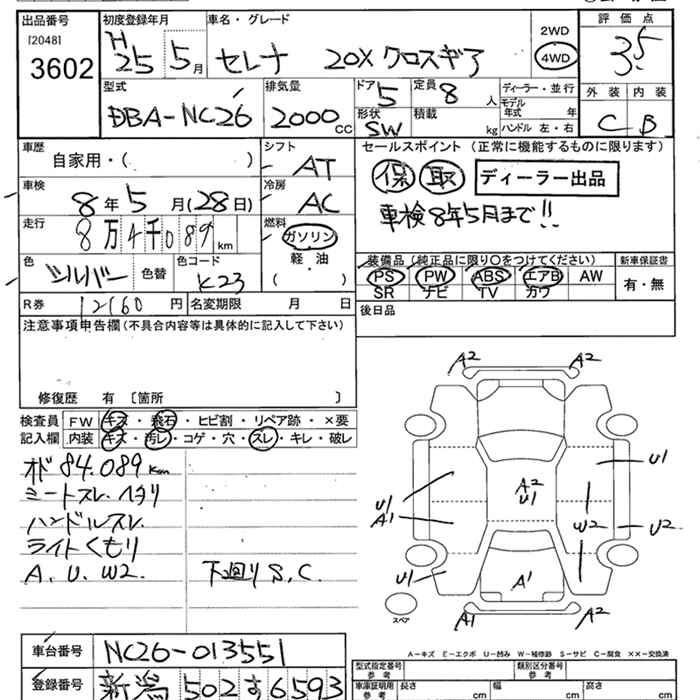 出品番号 初度登録年月 車名・グレード 評価点
[2048] H 2WD
3602 25 5月 セレナ 20X クロスギア 4WD 3.5
型式 排気量 ドア 定員 ディーラー・並行 外装 内装
5 8人 モデル年式 年
DBA-NC26 2000cc 形状 積載 C B
SW kg ハンドル 左・右
車歴 シフト セールスポイント (正常に機能するものに限ります)
自家用・( ) AT 保 取 ディーラー出品
車検 冷房
8年5月(28日) AC 車検8年5月まで!!
走行 燃料
8万4千089km ガソリン
軽・油
( )
色 色替 色コード 装備品 (純正品に限り○をつけてください) 新車保証書
シルバー K23 PS PW ABS エアB AW 有・無
SR ナビ TV カワ
R券 12160円 名変期限 月 日 後日品
注意事項申告欄 (不具合内容等は具体的に記入して下さい)
修復歴 有 〔箇所 〕
検査員 FW キズ・飛石・ヒビ割・リペア跡・×要
記入欄 内装 キズ・汚レ・コゲ・穴・スレ・キレ・破レ
オド 84.089km
シートスレ.ヘタリ
ハンドルスレ.
ライトくもり
A.U.W2. 下廻りS.C.
A2 A2
U1
A2
U1
U1
A1
W2 U2
U1 A1
A1 A2
スペア
A-キズ E-エクボ U-凹み W-補修跡 S-サビ C-腐食 ××-交換済
車台番号 NC26-013551
型式指定番号 参考 類別区分番号 参考
登録番号 新潟 502 す 6593
車庫証明用 参考 長さ cm 幅 cm 高さ cm